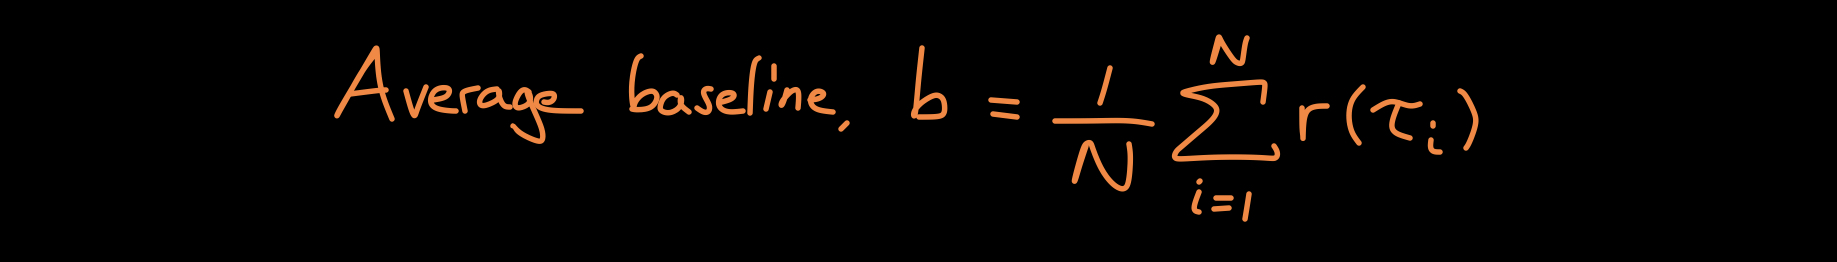 Average baseline, b = \frac{1}{N} \sum_{i=1}^{N} r(\tau_i)